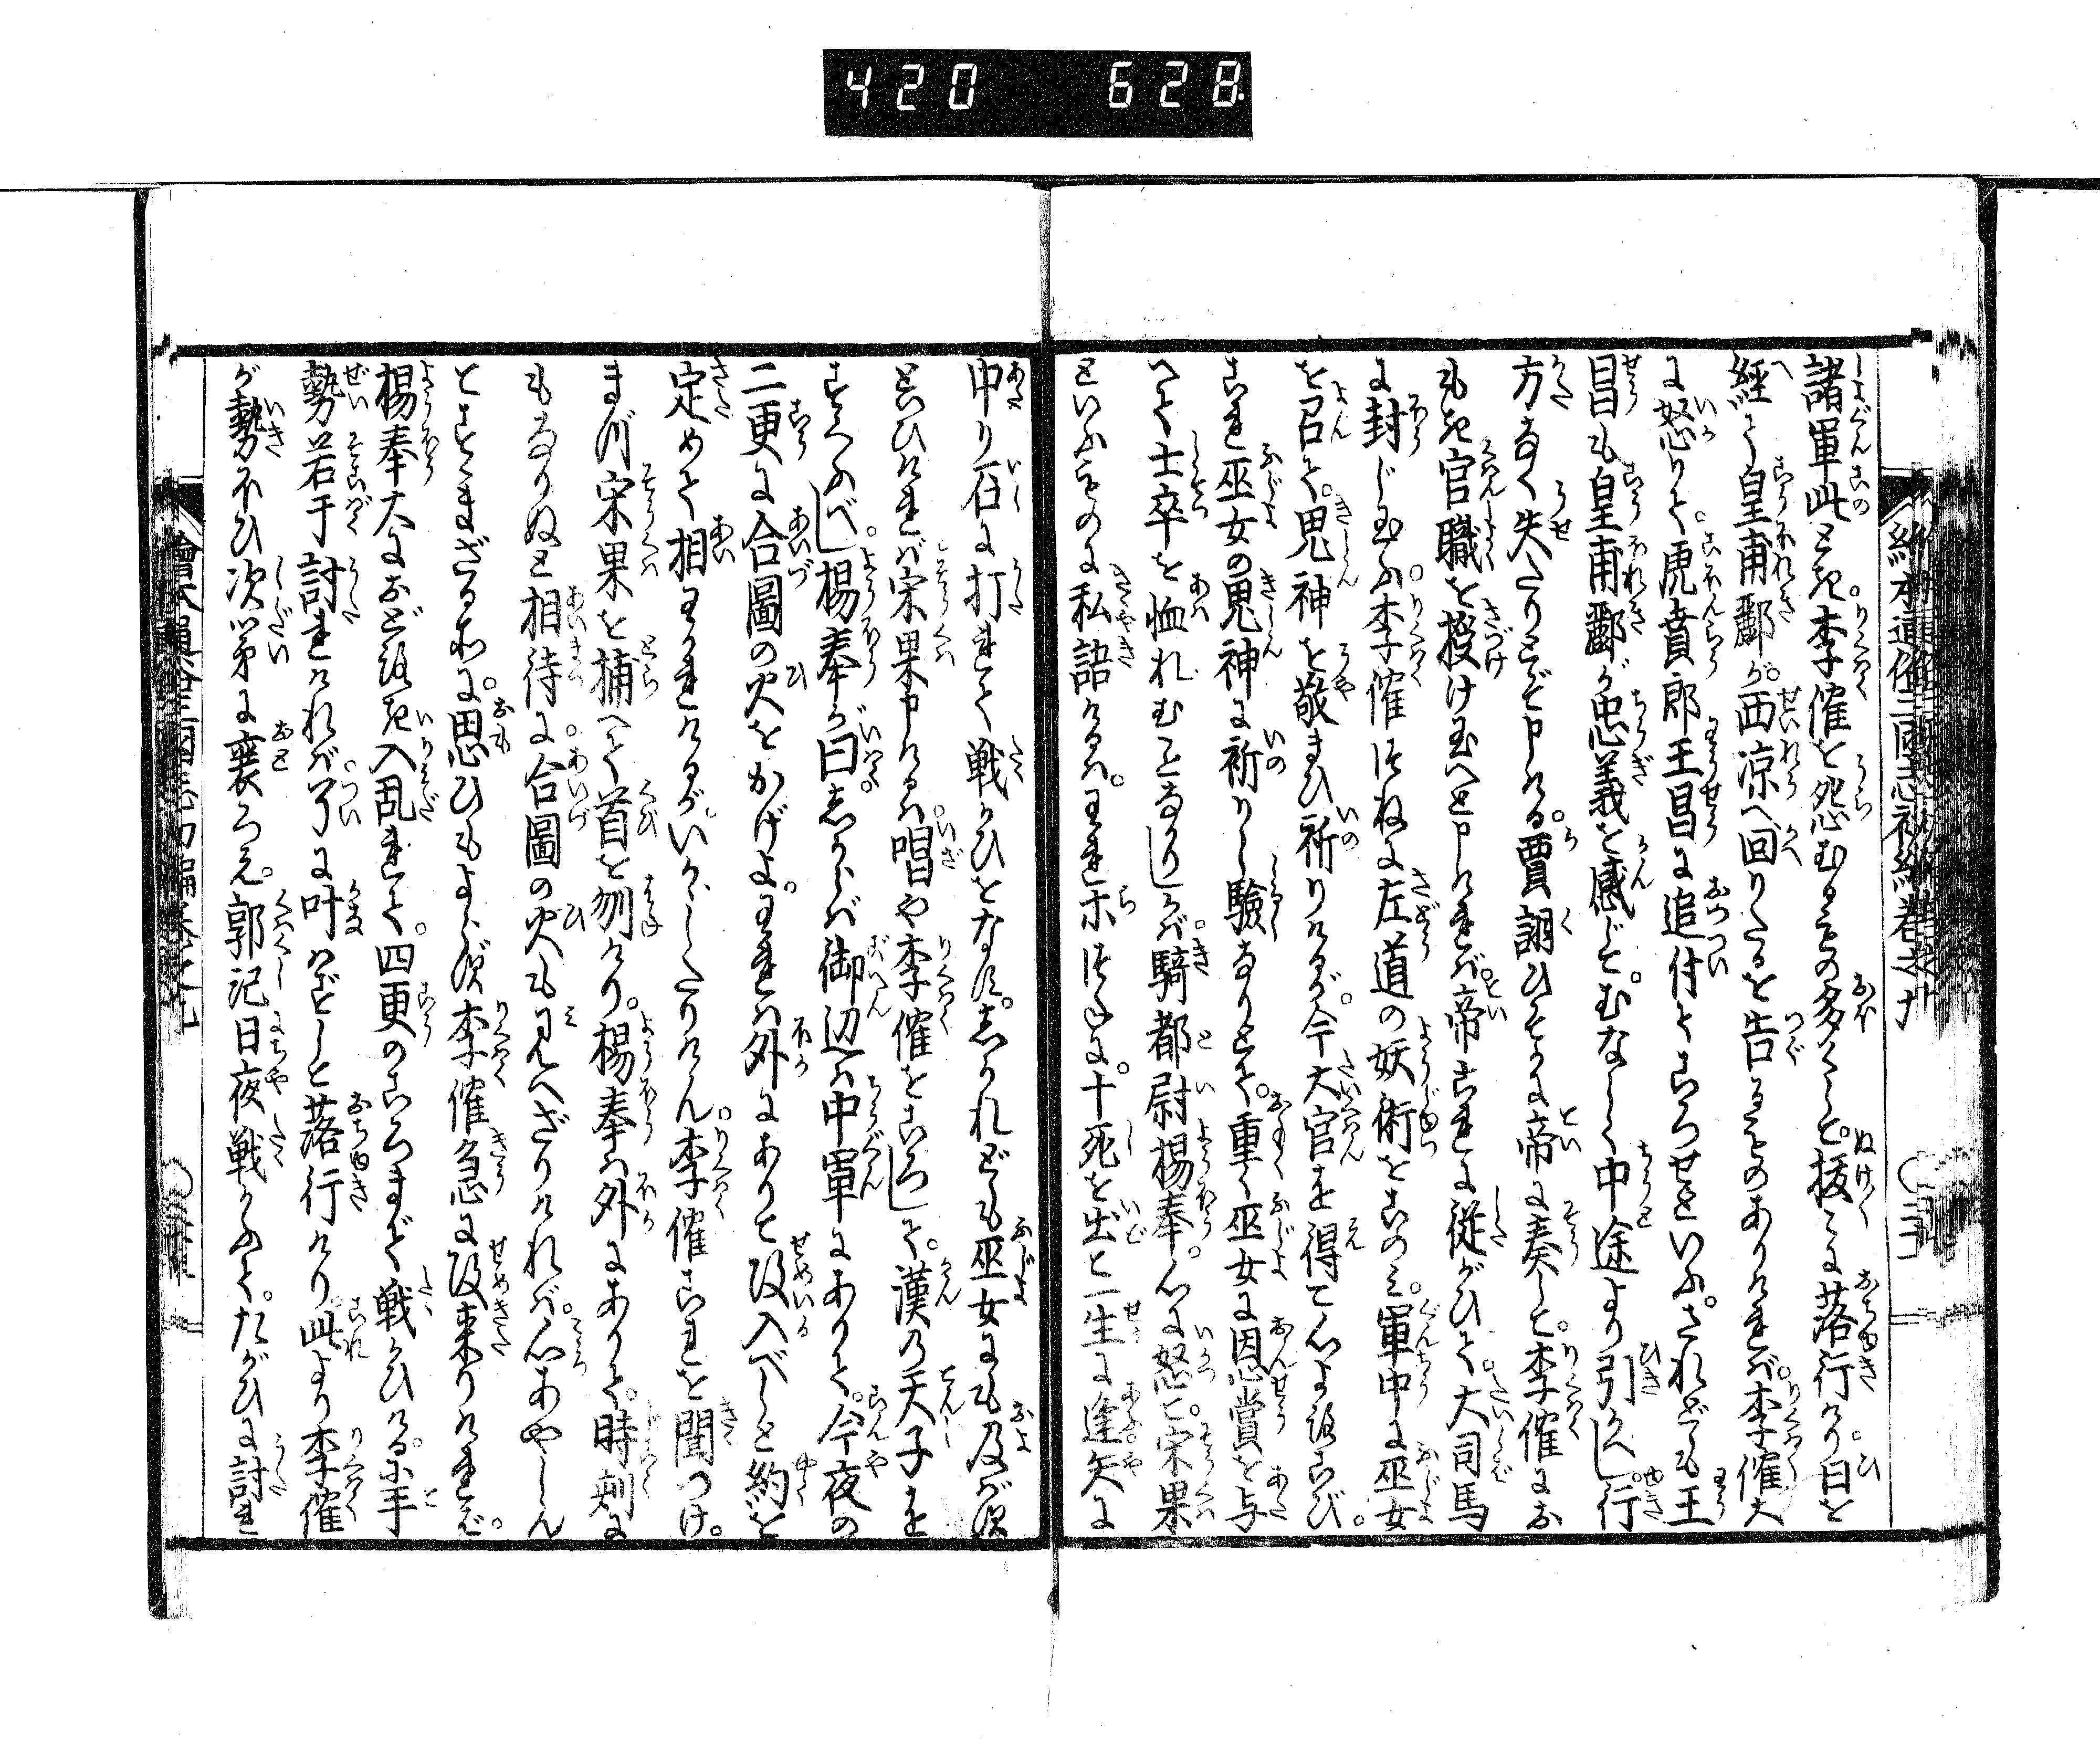 420 628
諸軍此とき。李傕を怨むるもの多くして。抜〻に落行けり。日を
経て皇甫酈が。西凉へ回りたるを告るものありければ。李傕大
に怒りて。虎賁郎王昌に追付てころせといふ。されども王
昌も皇甫酈が忠義を感じて。むなしく中途より引かへし。行
方なく失たりとぞ申ける。賈詡ひそかに帝に奏して。李傕にお
もき官職を授け玉へと申ければ。帝これに従がひて。大司馬
に封じ玉ふ。李傕つねに左道の妖術をこのみ。軍中に巫女
を召て。鬼神を敬まひ祈りけるが。今大官を得て心よろこび。
これ巫女の鬼神に祈りし験なりとて。重く巫女に恩賞を与
へて士卒を恤れむことなかりしかば。騎都尉楊奉。心に怒て。宋果
といふものに私語けるは。われホつねに。十死を出て一生に逢矢に
中り石に打れて戦かひをなす。しかれども巫女にも及ばず
といひければ宋果申けるは。唱や李傕をころして。漢の天子を
すくふべし。楊奉が曰。しからば御辺は中軍にありて。今夜の
二更に合圖の火をかげよ。われは外にありて攻入べしと約を
定めて相わかれけるが。いかゞしたりけん。李傕これを聞つけ。
まづ宋果を捕へて首を刎けり。楊奉は外にありて。時刻に
もなりぬと相待に。合圖の火も見へざりければ。心あやしん
とすゝまざる処に。思ひもよらず李傕急に攻来りければ。
楊奉大におどろき入乱れて。四更のころまで戦かひける。ホ手
勢若干討れければ。了に叶はじと落行けり。此より李傕
が勢ひ次第に衰ろえ。郭汜日夜戦かふて。たがひに討れ